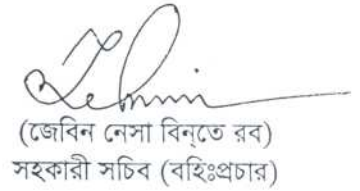 (জেবিন নেসা বিন্‌তে রব)
সহকারী সচিব (বহিঃপ্রচার)